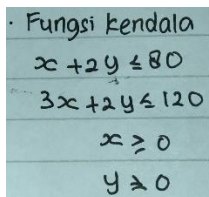 · Fungsi kendala
x + 2y ≤ 80
3x + 2y ≤ 120
x ≥ 0
y ≥ 0